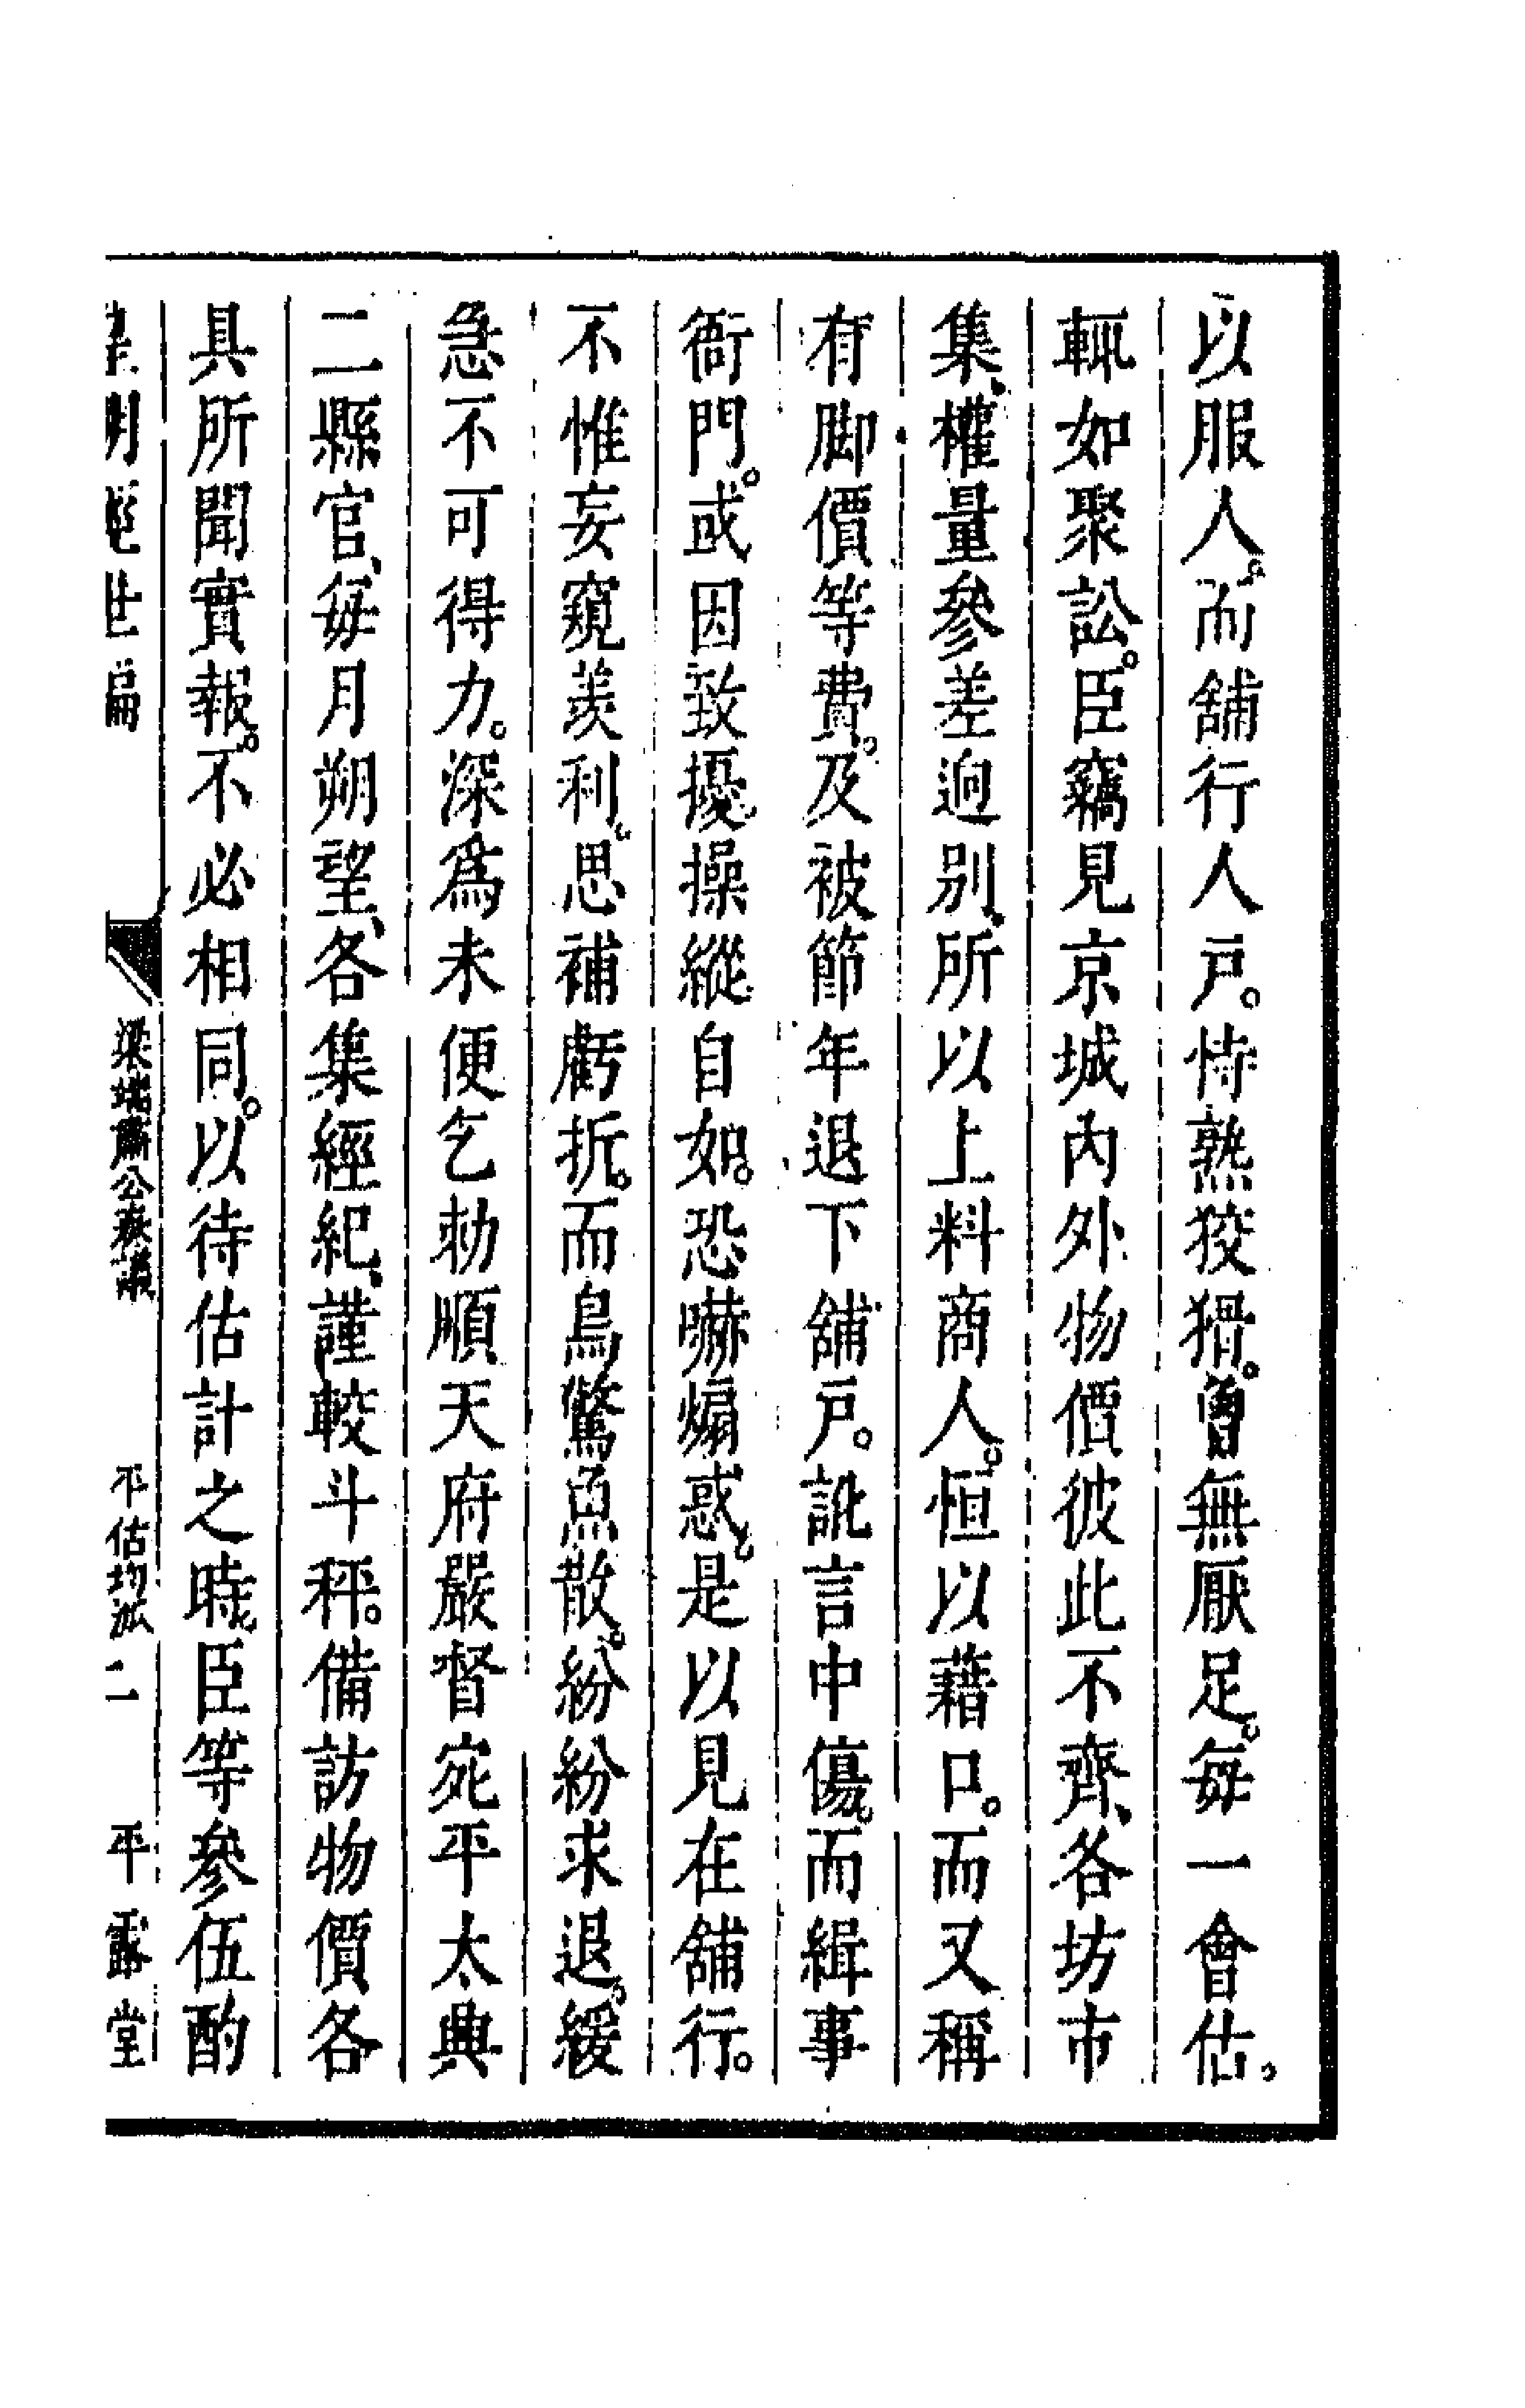 以服人。而舖行人戸。恃熟狡猾。曾無厭足。每一會估、
輒如聚訟。臣竊見京城內外物價彼此不齊、各坊市
集、權量參差逈别、所以上料商人。恒以藉口。而又稱
有脚價等費。及被節年退下舖戸。訛言中傷。而緝事
衙門。或因致擾。操縱自如。恐嚇煽惑。是以見在舖行。
不惟妄窺羨利。思補虧折。而鳥驚魚散。紛紛求退。緩
急不可得力。深爲未便乞勅順天府嚴督宛平太興
二縣官、每月朔望、各集經紀、謹較斗秤。備訪物價各
具所聞實報。不必相同。以待估計之時。臣等參伍酌
皇明經世編
梁端肅公奏議
平估均派
二
平露堂